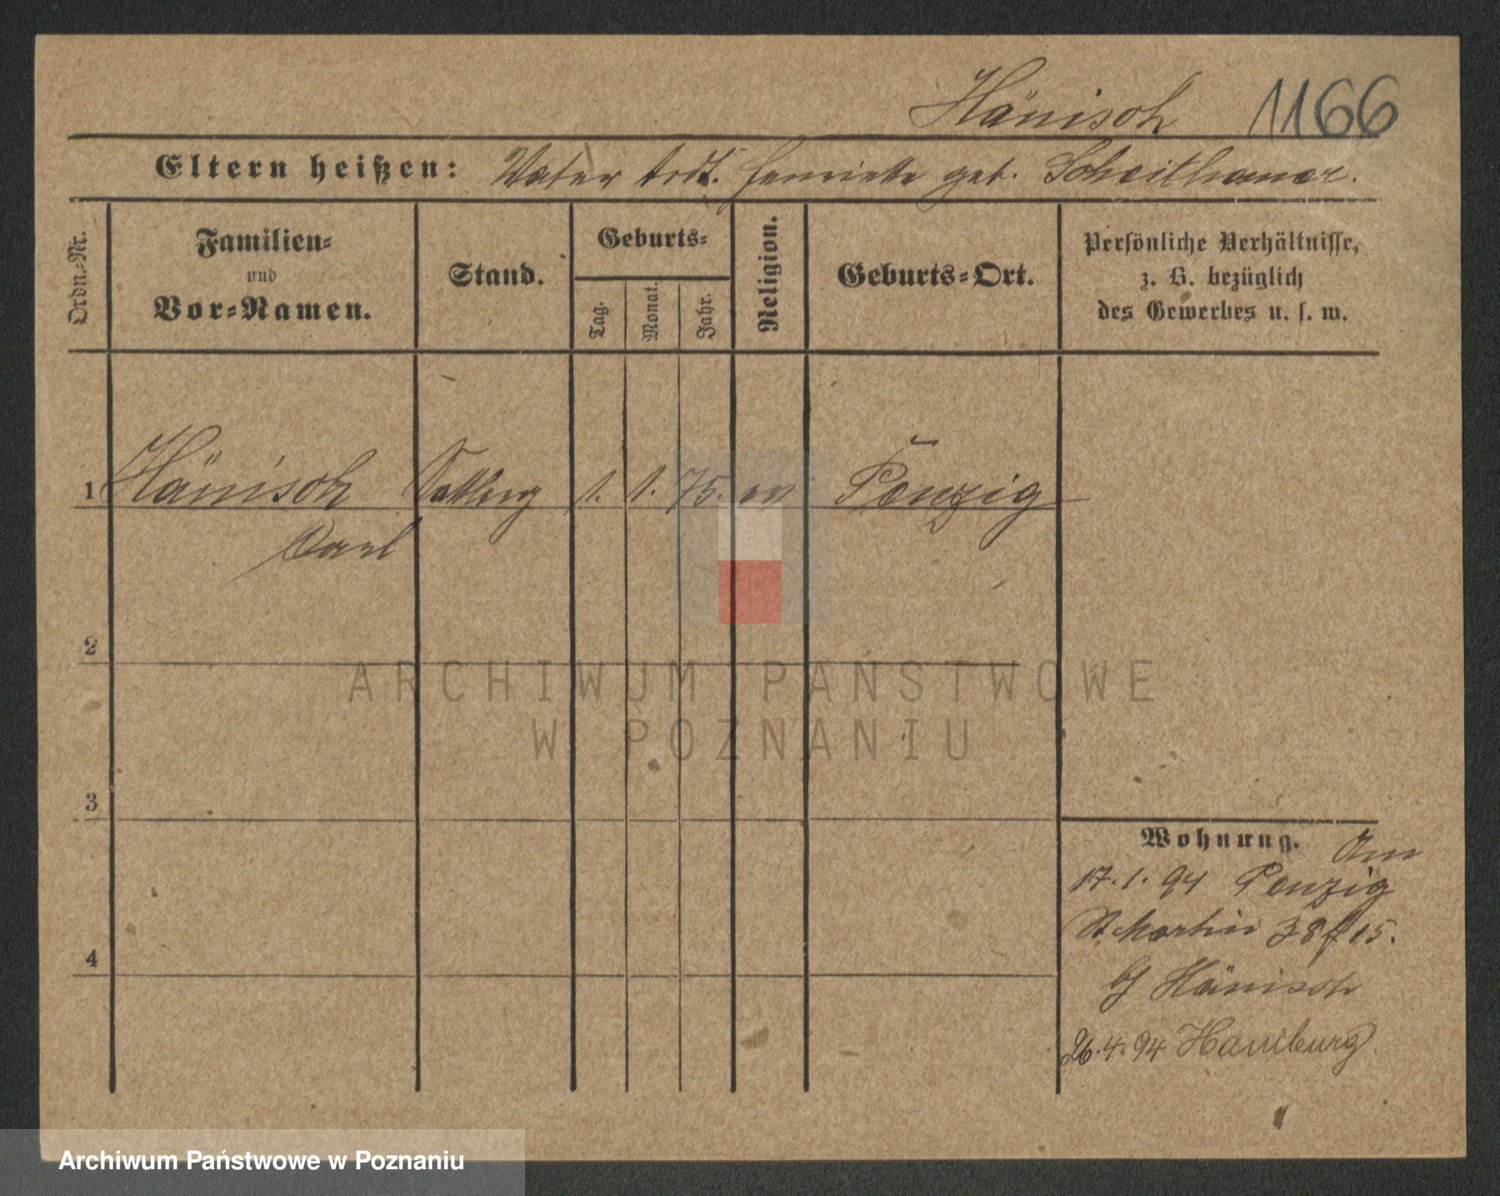 Hänisch 1166
Eltern heißen: Vater todt. Henriette geb. Scheithauer.
Ordn.-Nr.
Familien-
und
Vor-Namen.
Stand.
Geburts-
Tag.
Monat.
Jahr.
Religion.
Geburts-Ort.
Persönliche Verhältnisse,
z. B. bezüglich
des Gewerbes u. s. w.
1 Hänisch 1. 1. 75. ev Penzig
Carl
2
ARCHIWUM PAŃSTWOWE
W POZNANIU
3
Wohnung. Am
17.1.94 Penzig
St. Martin 38 15.
b/ Hänisch
26.4.94 Hamburg
4
Archiwum Państwowe w Poznaniu